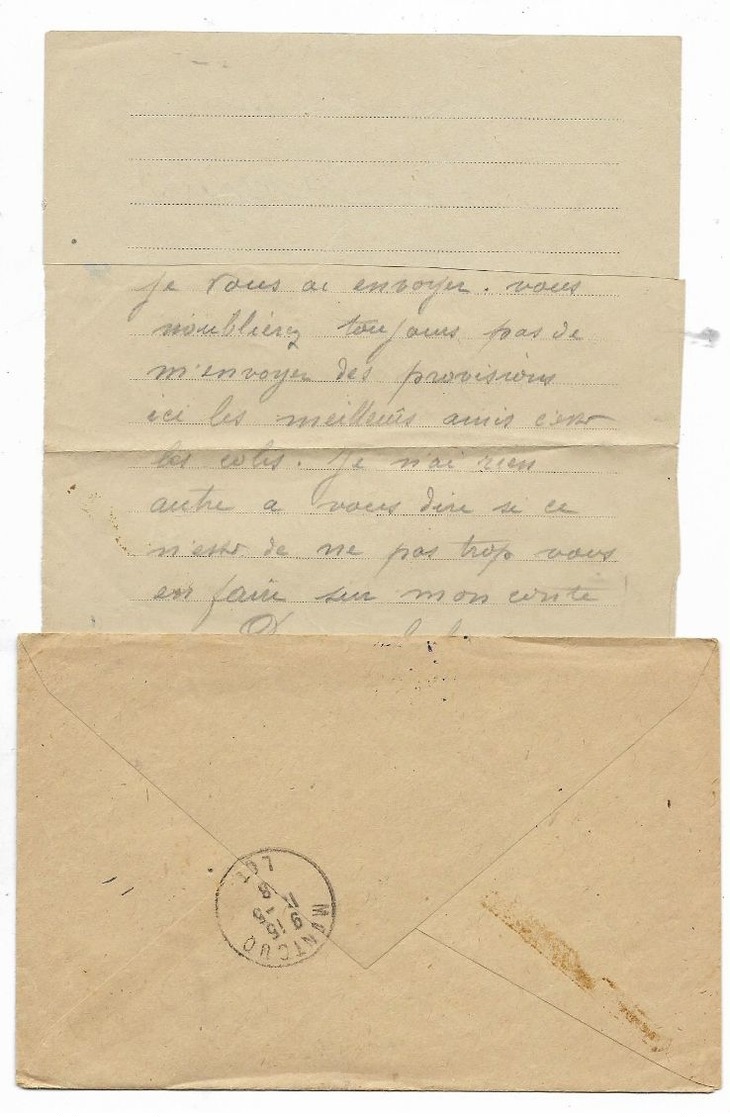 je vous ai envoyer. vous
n'oublierez toujours pas de
m'envoyer des provisions
ici les meilleurs amis c'est
les colis. Je n'ai rien
autre a vous dire si ce
n'est de ne pas trop vous
en faire sur mon conte
MONTCUQ
LOT